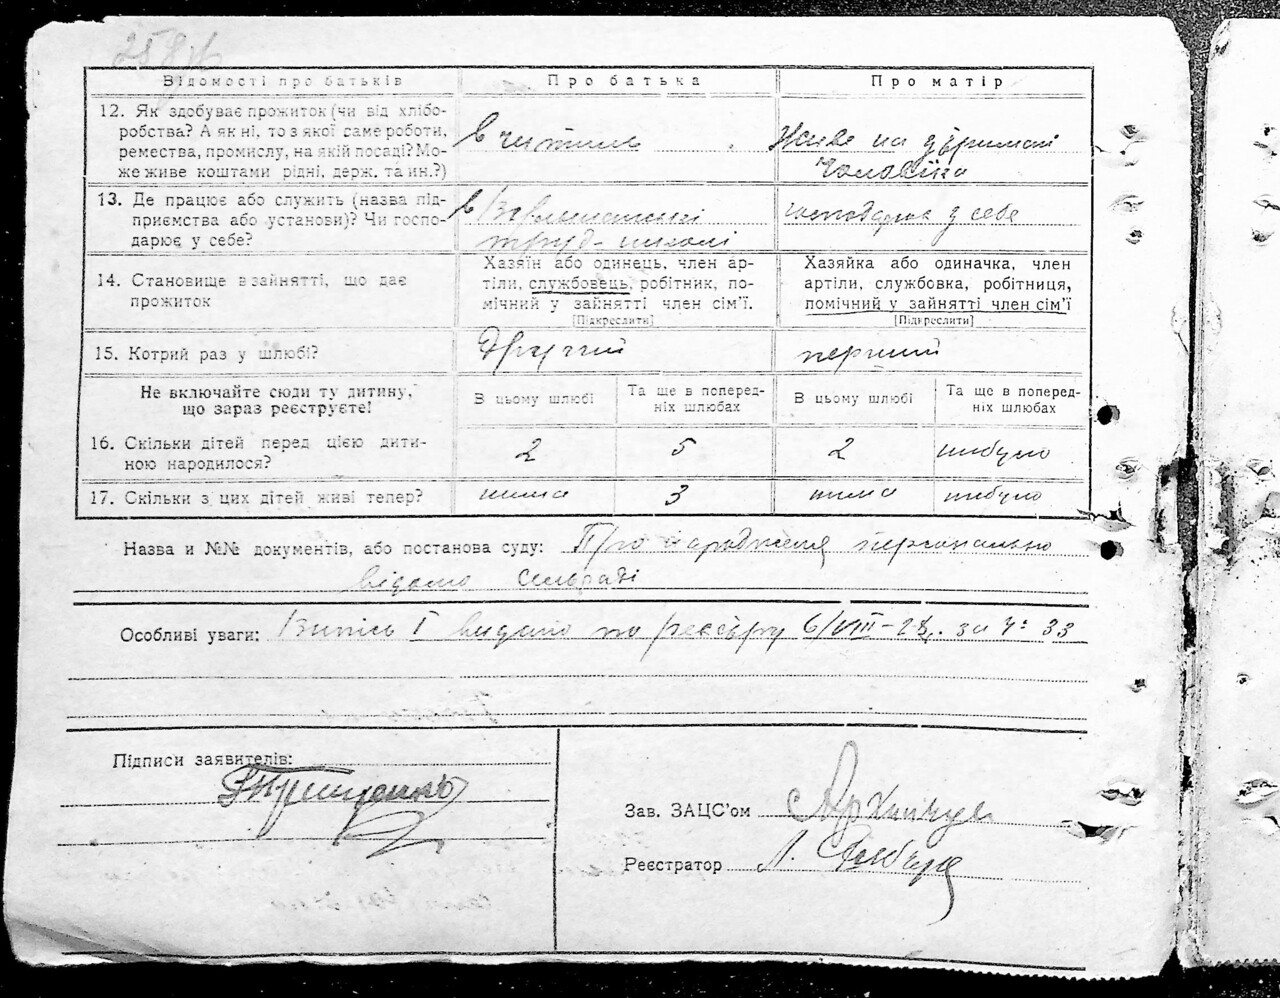 Відомості про батьків
Про батька
Про матір
12. Як здобуває прожиток (чи від хлібо-
робства? А як ні, то з якої саме роботи,
ремества, промислу, на якій посаді? Мо-
же живе коштами рідні, держ. та ин.?)
Вчитель
Живе на
Чоловіка
13. Де працює або служить (назва під-
приємства або установи)? Чи госпо-
дарює у себе?
В
труд-школі
господарює у себе
14. Становище в зайнятті, що дає
прожиток
Хазяїн або одинець, член ар-
тіли, службовець, робітник, по-
мічний у зайнятті член сім'ї.
[Підкреслити]
Хазяйка або одиначка, член
артіли, службовка, робітниця,
помічний у зайнятті член сім'ї
[Підкреслити]
15. Котрий раз у шлюбі?
Другий
перший
Не включайте сюди ту дитину,
що зараз реєструєте!
В цьому шлюбі
Та ще в поперед-
ніх шлюбах
В цьому шлюбі
Та ще в поперед-
ніх шлюбах
16. Скільки дітей перед цією дити-
ною народилося?
2
5
2
небуло
17. Скільки з цих дітей живі тепер?
нема
3
нема
небуло
Назва и №№ документів, або постанова суду: Про народження персонально
відомо сельраді
Особливі уваги: Випись I видано по реєстру 6/VIII-28. за №33
Підписи заявителів:
Зав. ЗАЦС'ом
Реєстратор Л.